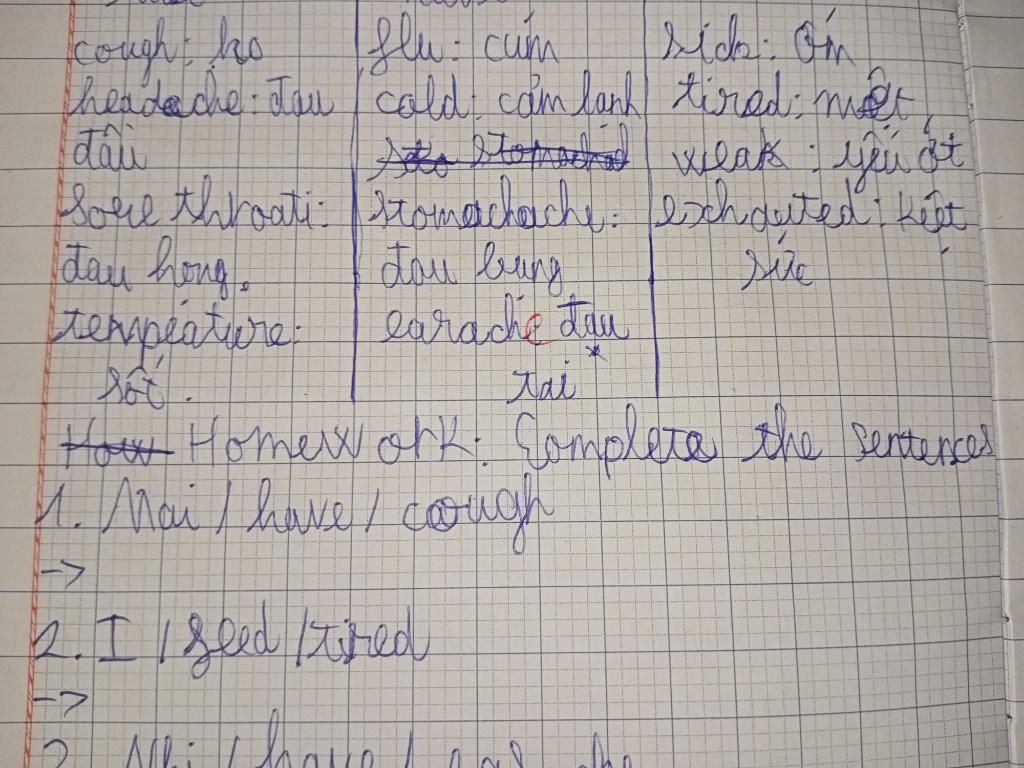 cough: ho
headache: đau
đầu
sore throati:
đau họng.
tempeature:
sốt.
flu: cúm
cold: cảm lạnh
stomachache:
đau bụng
earache đau
tai
sick: ốm
tired: mệt
weak: yếu ớt
exhauted: kiệt
sức
How Homework: Complete the sentences
1. Mai / have / cough
->
2. I / feed / tired
->
3. Nhi / have /